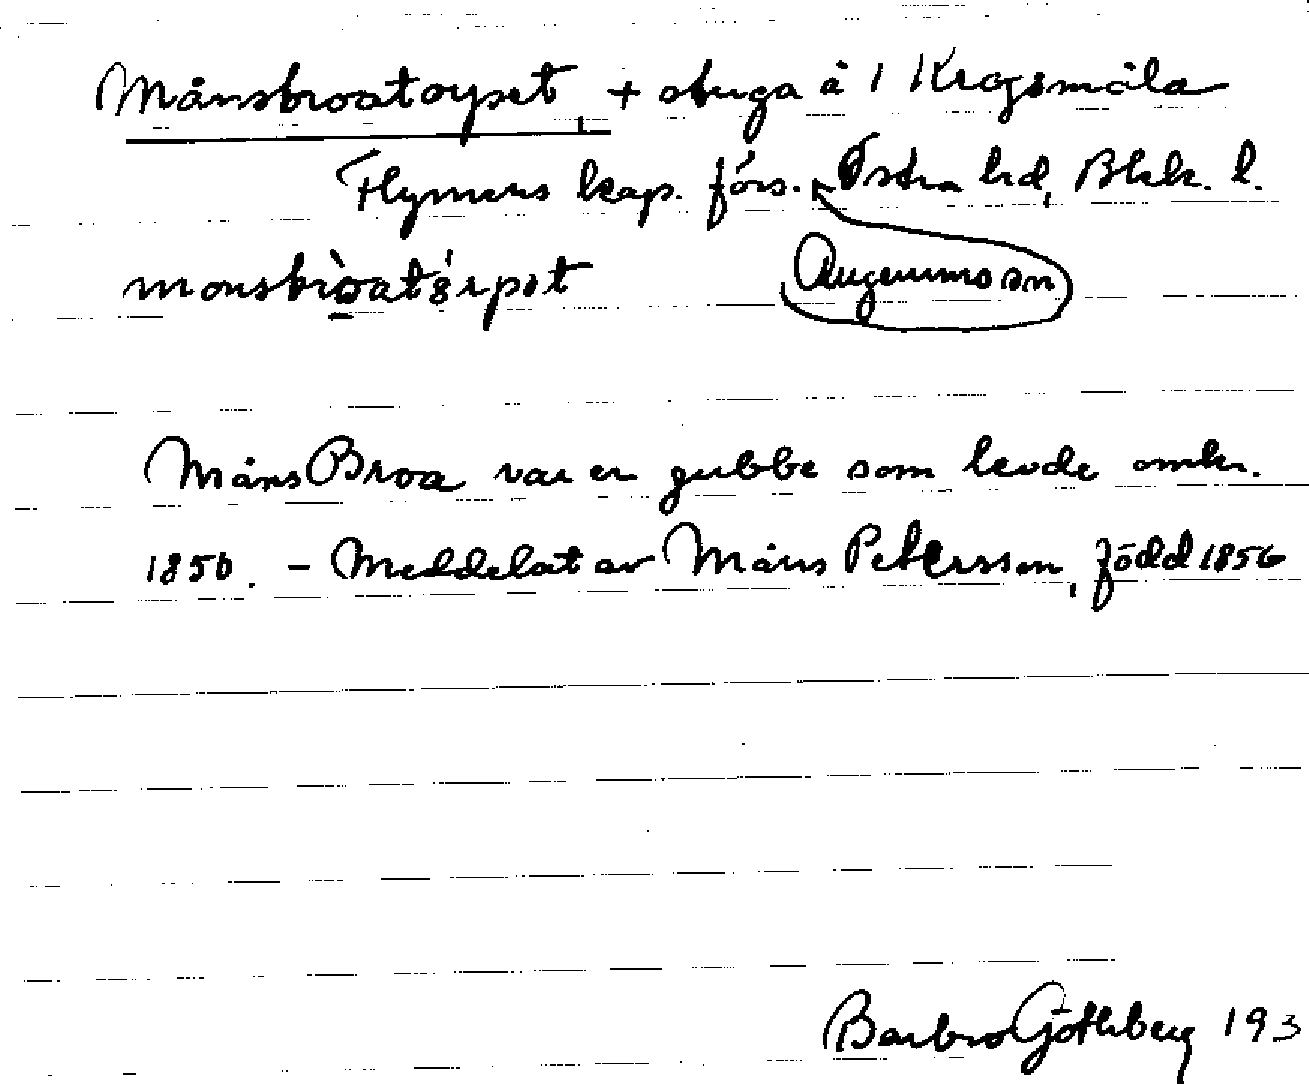 Månsbroatorpet, + stuga å 1 Krogsmåla
Flymens kap. förs. Östra hd, Blek. l.
Augerums sn
monsbròatórpət
Måns Broa var en gubbe som levde omkr.
1850. – Meddelat av Måns Petersson, född 1856
Barbro Göthberg 193